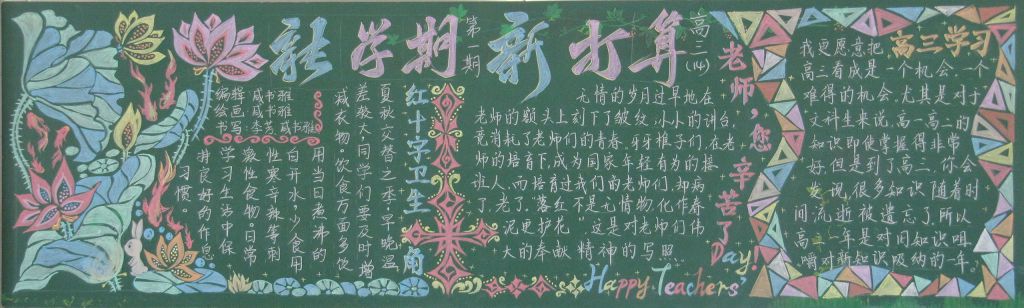 新学期新打算
第一期
高三(14)
编辑 咸书雅
绘画 咸书雅
书写 李芸 咸书雅
红十字卫生角
夏秋交替之季,早晚温
差较大,同学们要及时增
减衣物。饮食方面多饮
用当日煮沸的
白开水,少食用
性寒、辛辣等刺
激性食物。日常
学习生活中保
持良好的作息
习惯。
无情的岁月过早地在
老师的额头上刻下了皱纹,小小的讲台,
竟消耗了老师们的青春。牙牙稚子们,在老
师的培育下,成为国家年轻有为的接
班人,而培育过我们的老师们,却病
了,老了。"落红不是无情物,化作春
泥更护花"这是对老师们伟
大的奉献精神的写照。
老师,您辛苦了
Happy Teachers' Day!
高三学习
我更愿意把
高三看成是一个机会,一个
难得的机会。尤其是对于
文科生来说,高一高二的
知识即使掌握得非常
好,但是到了高三,你会
发现,很多知识随着时
间流逝被遗忘了,所以
高三一年是对旧知识咀
嚼,对新知识吸纳的一年。